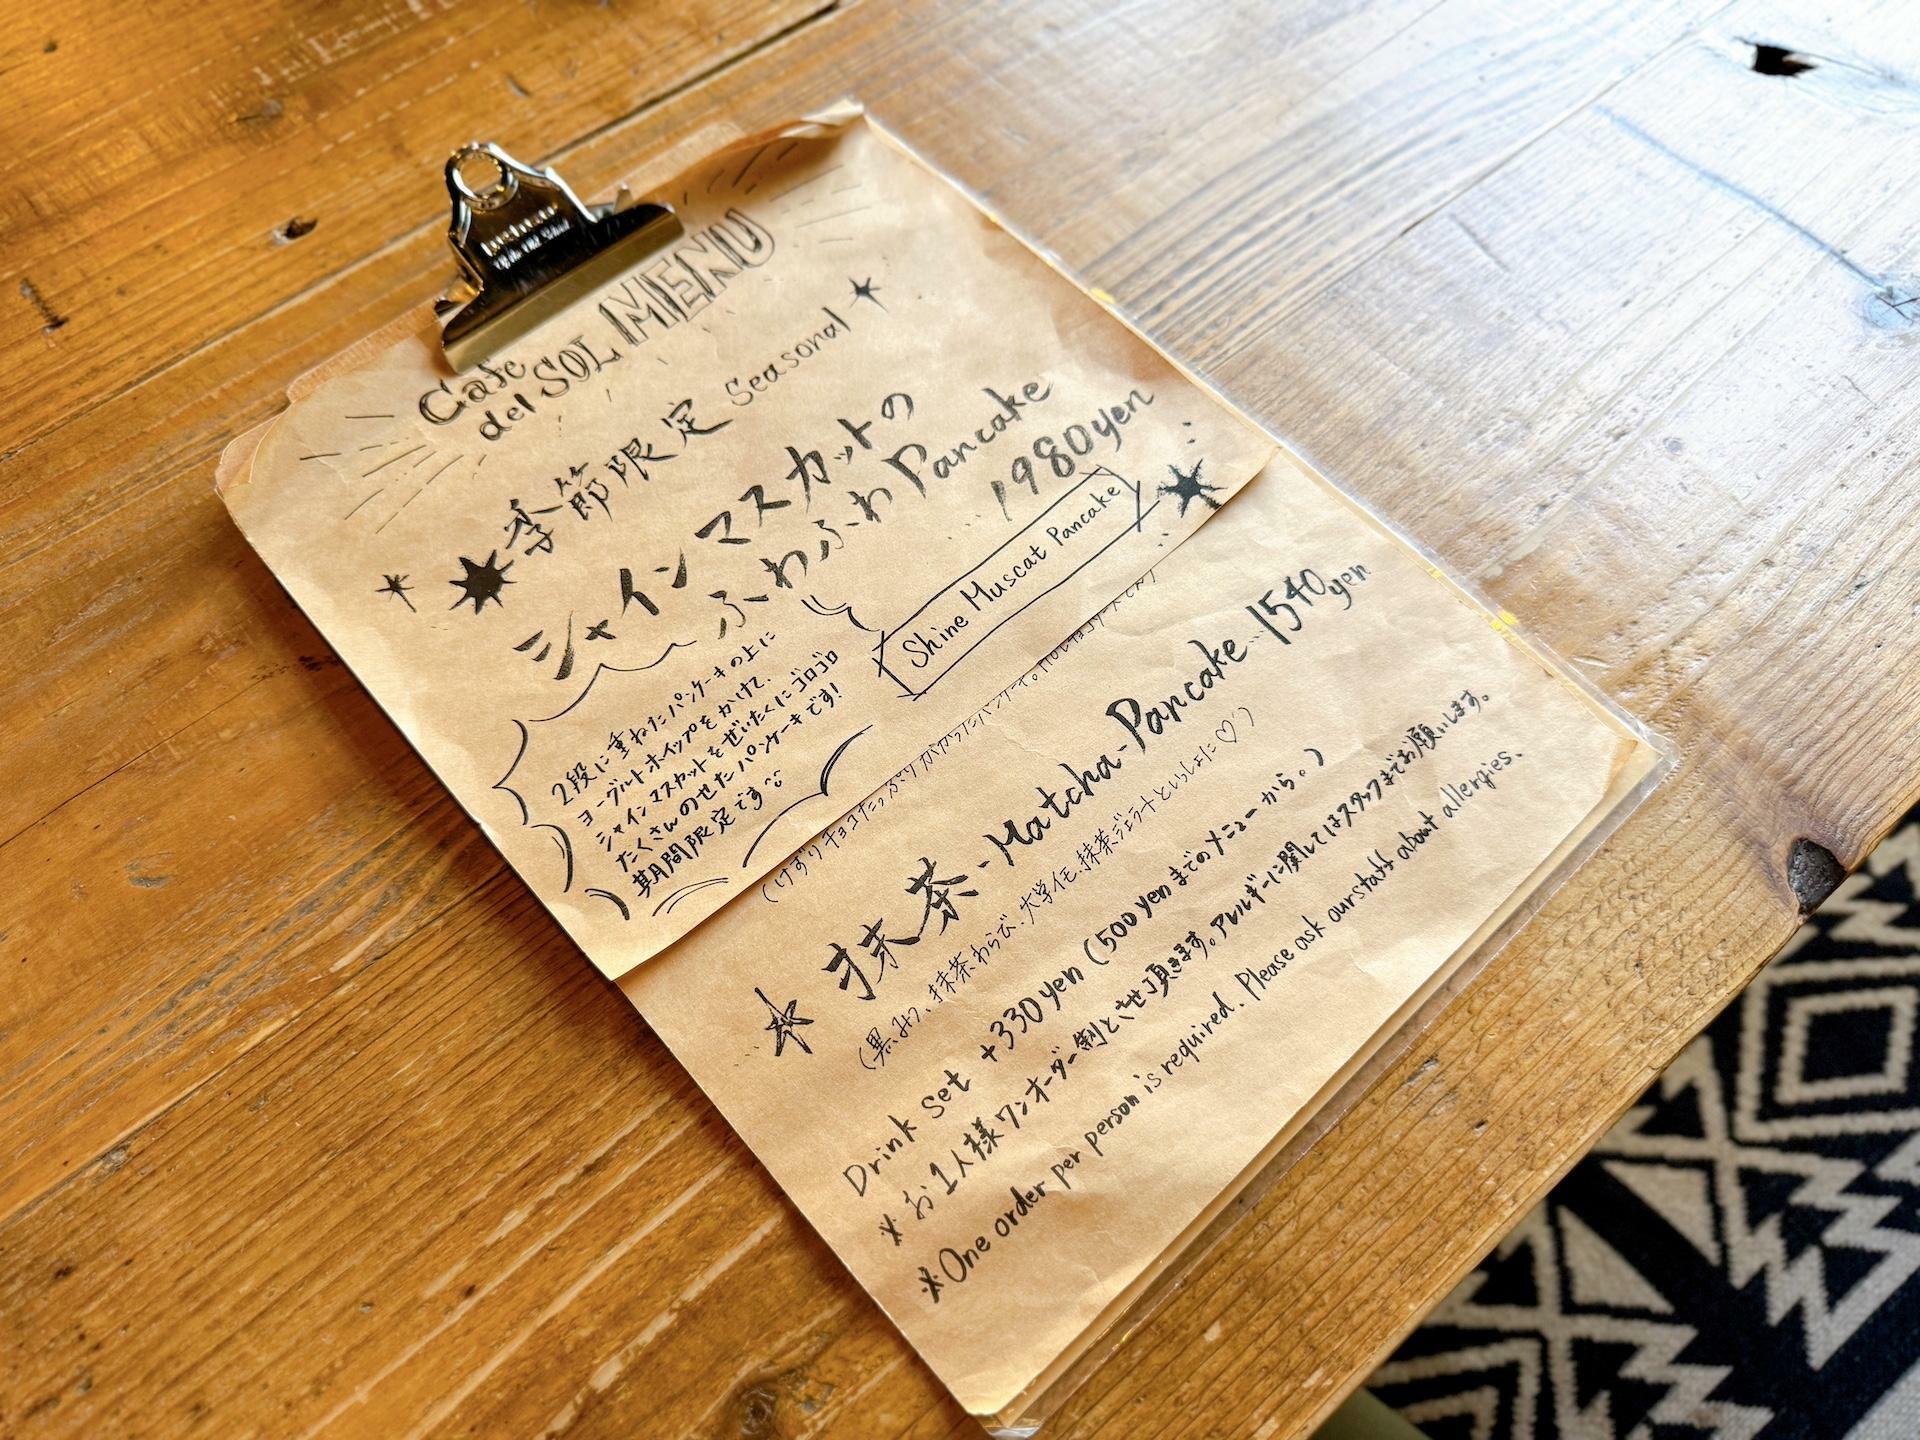 Cafe del SOL MENU
季節限定 Seasonal
シャインマスカットの
ふわふわ Pancake
1980yen
Shine Muscat Pancake
2段に重ねたパンケーキの上に
ヨーグルトホイップをかけて、
シャインマスカットをぜいたくにゴロゴロ
たくさんのせたパンケーキです!
期間限定です
(けずりチョコたっぷり
抹茶-Matcha-Pancake 1540yen
(黒みつ、抹茶わらび、大学イモ、抹茶ジェラートといっしょに♡)
Drink Set +330yen (500yenまでのメニューから。)
※お1人様ワンオーダー制とさせ頂きます。アレルギーに関してはスタッフまでお願いします。
※One order per person is required. Please ask our staff about allergies.